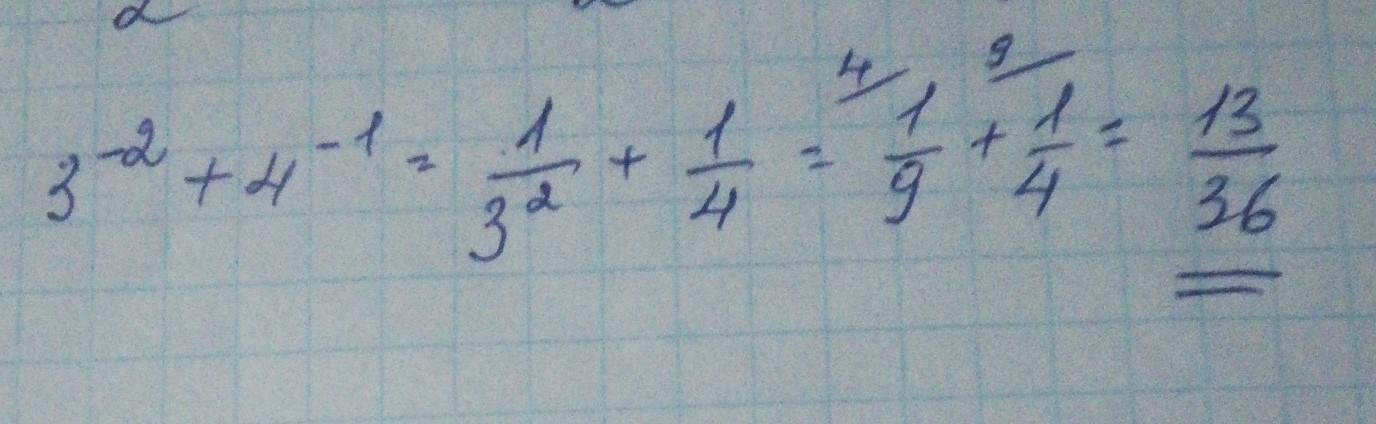 3^{-2} + 4^{-1} = \frac{1}{3^2} + \frac{1}{4} = \overset{4/}{\frac{1}{9}} + \overset{9/}{\frac{1}{4}} = \frac{13}{36}